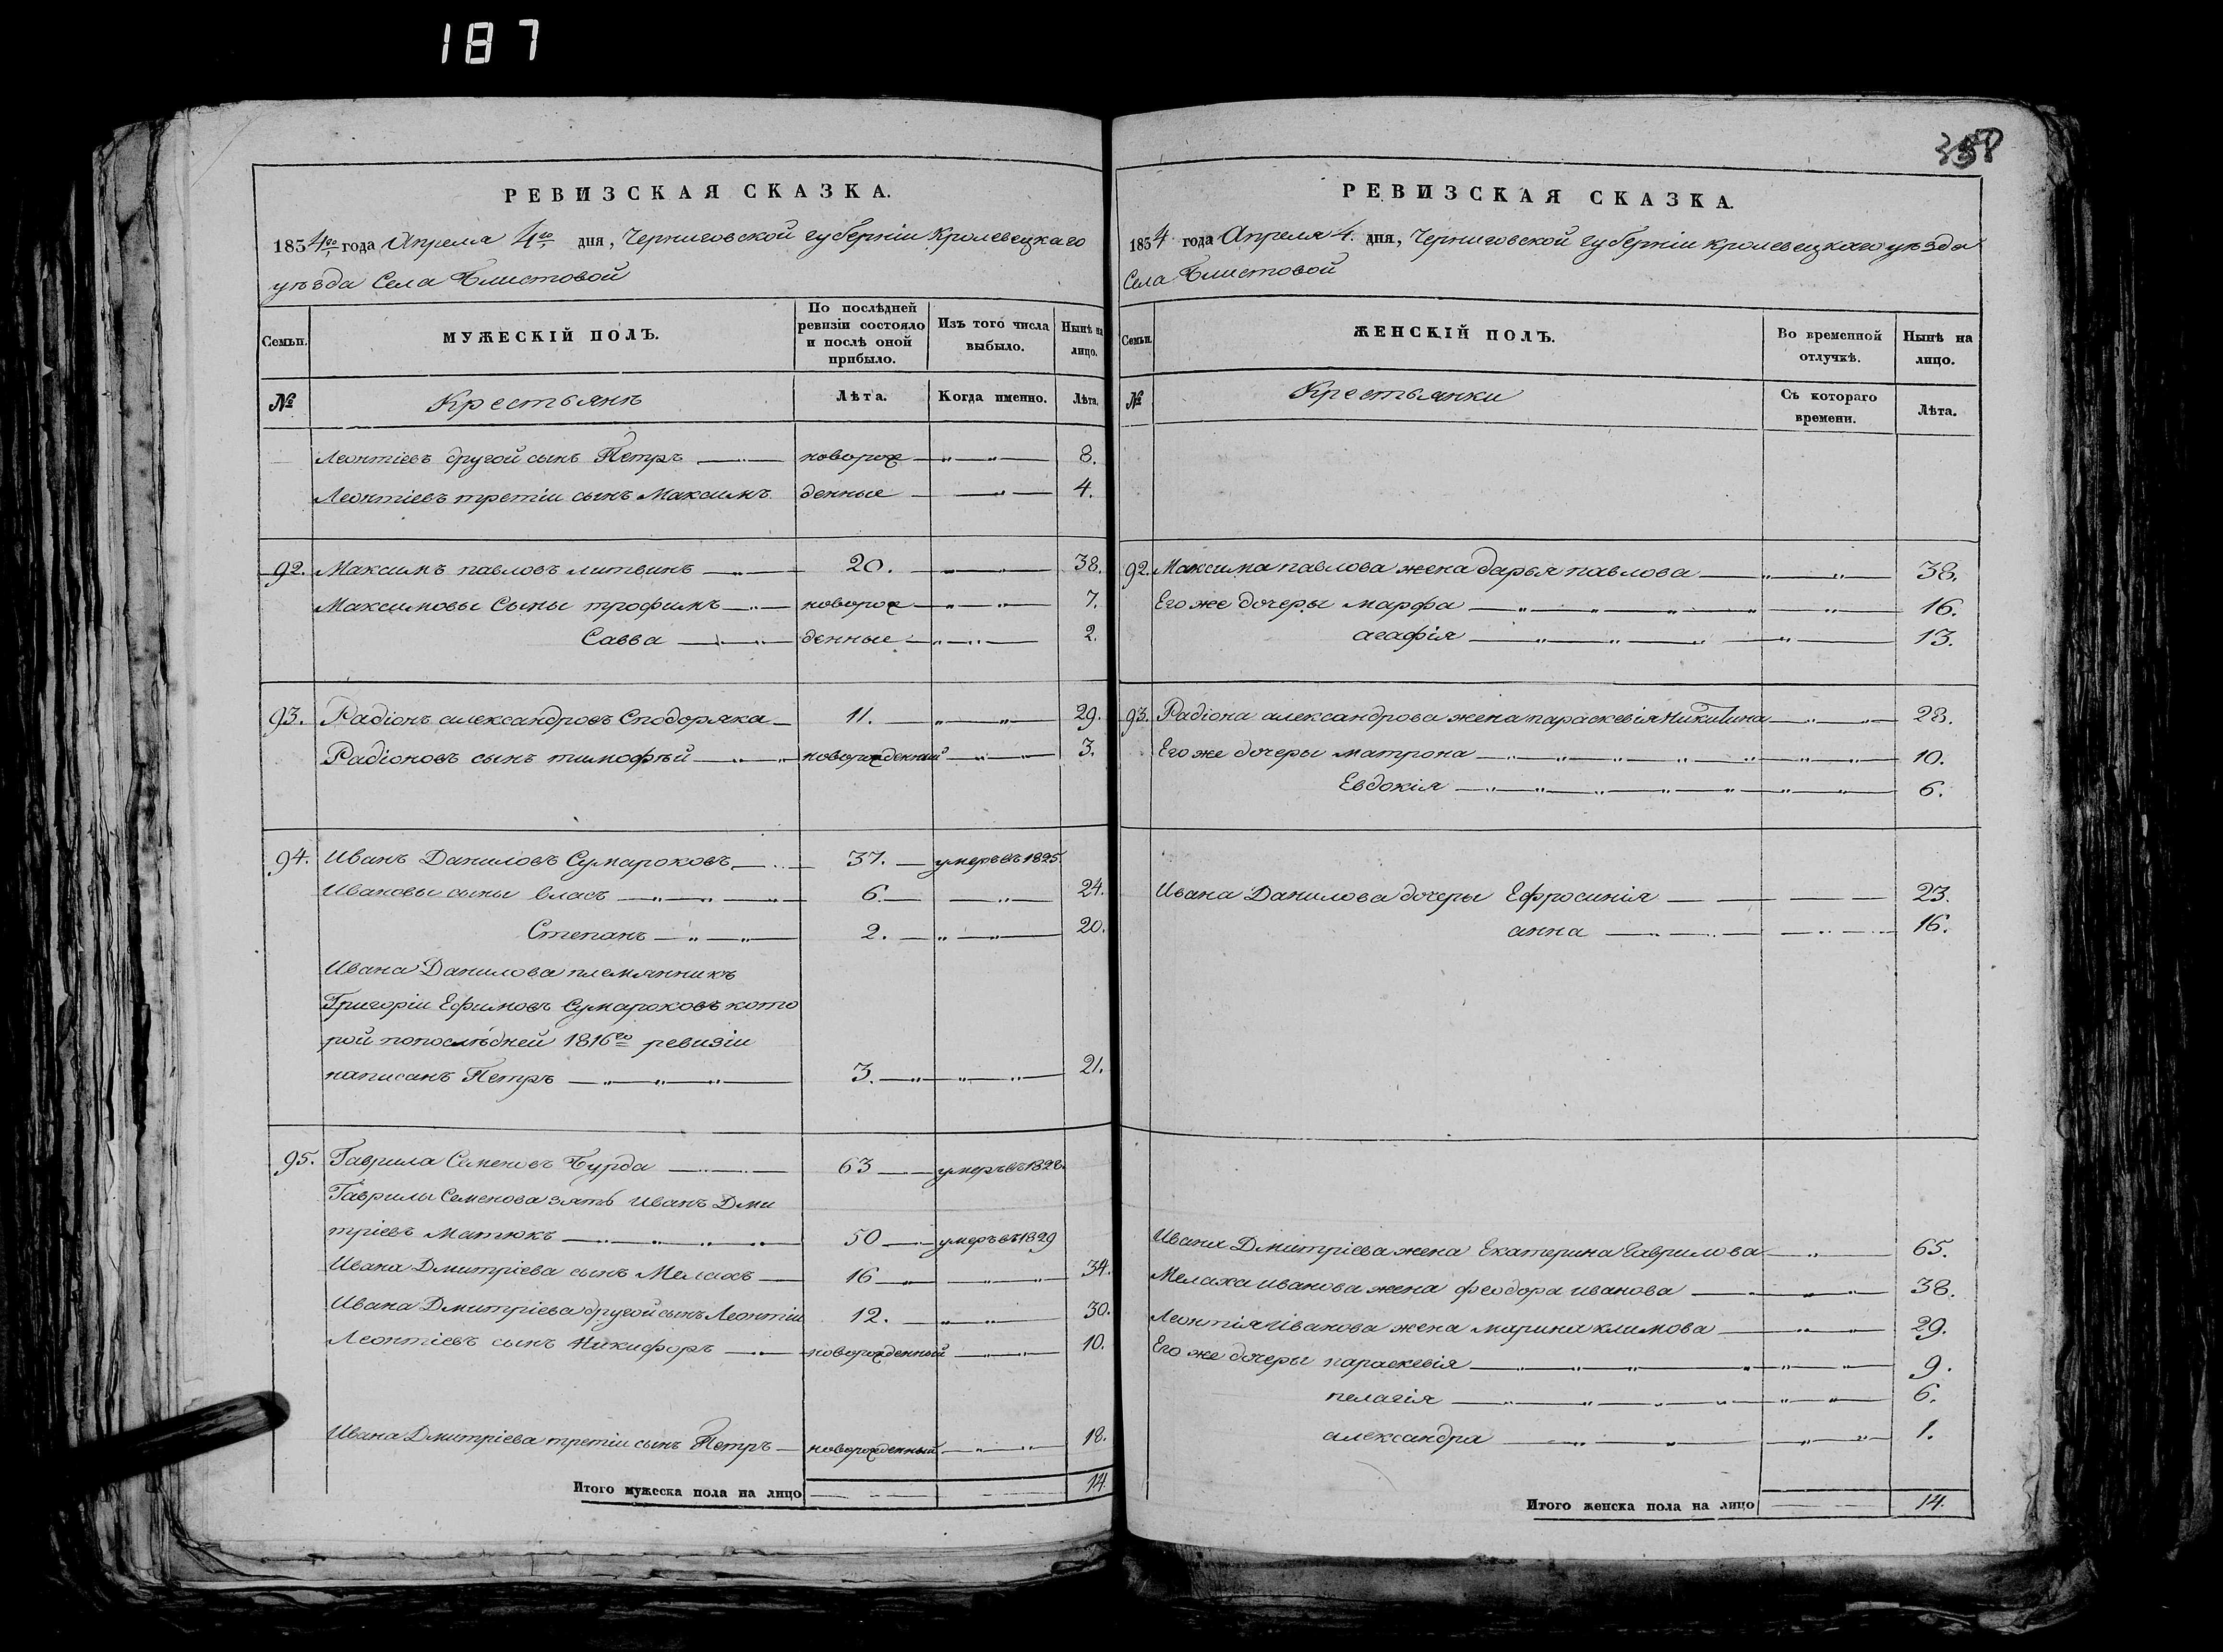 187
РЕВИЗСКАЯ СКАЗКА.
1834го года Апреля 4го дня, Черниговской губерніи Кролевецкаго
уѣзда Села Блистовой
Семьи.
МУЖЕСКІЙ ПОЛЪ.
По послѣдней ревизіи состояло и послѣ оной прибыло.
Изъ того числа выбыло.
Нынѣ на лицо.
№
Крестьянъ
Лѣта.
Когда именно.
Лѣта.
Леонтіевъ другой сынъ Петръ новорож 8.
Леонтіевъ третіи сынъ Максимъ денные 4.
92. Максимъ павловъ литвинъ 20. 38.
Максимовы Сыны трофимъ новорож 7.
Савва денные 2.
93. Радіонъ александровъ Сподоряка 11. 29.
Радіоновъ сынъ тимофѣй новорожденный 3.
94. Иванъ Даниловъ Сумароковъ 37. умеръ въ 1825.
Ивановы сыны власъ 6. 24.
Степанъ 2. 20.
Ивана Данилова племянникъ
Григоріи Ефимовъ Сумароковъ кото
рой попослѣдней 1816го ревизіи
написанъ Петръ 3. 21.
95. Гаврила Семеновъ Бурда 63 умеръ въ 1828.
Гаврилы Семенова зять Иванъ Дми
тріевъ Матюкъ 50 умеръ въ 1829
Ивана Дмитріева сынъ Мелахъ 16 34.
Ивана Дмитріева другой сынъ Леонтіи 12. 30.
Леонтіевъ сынъ Никифоръ новорожденный 10.
Ивана Дмитріева третіи сынъ Петръ новорожденный 18.
Итого мужеска пола на лицо 14.
РЕВИЗСКАЯ СКАЗКА.
1834 года Апреля 4. дня, Черниговской губерніи кролевецкаго уѣзда
Села Блистовой
Семьи.
ЖЕНСКІЙ ПОЛЪ.
Во временной отлучкѣ.
Нынѣ на лицо.
№
Крестьянки
Съ котораго времени.
Лѣта.
92. Максима павлова жена дарья павлова 38.
Его же дочеры марфа 16.
агафія 13.
93. Радіона александрова жена параскевія Никитина 28.
Его же дочеры матрона 10.
Евдокія 6.
Ивана Данилова дочеры Ефросинія 23.
анна 16.
Ивана Дмитріева жена Екатерина Гаврилова 65.
Мелаха иванова жена феодора иванова 38.
Леонтія Иванова жена марина климова 29.
Его же дочеры параскевія 9.
пелагія 6.
александра 1.
Итого женска пола на лицо 14.